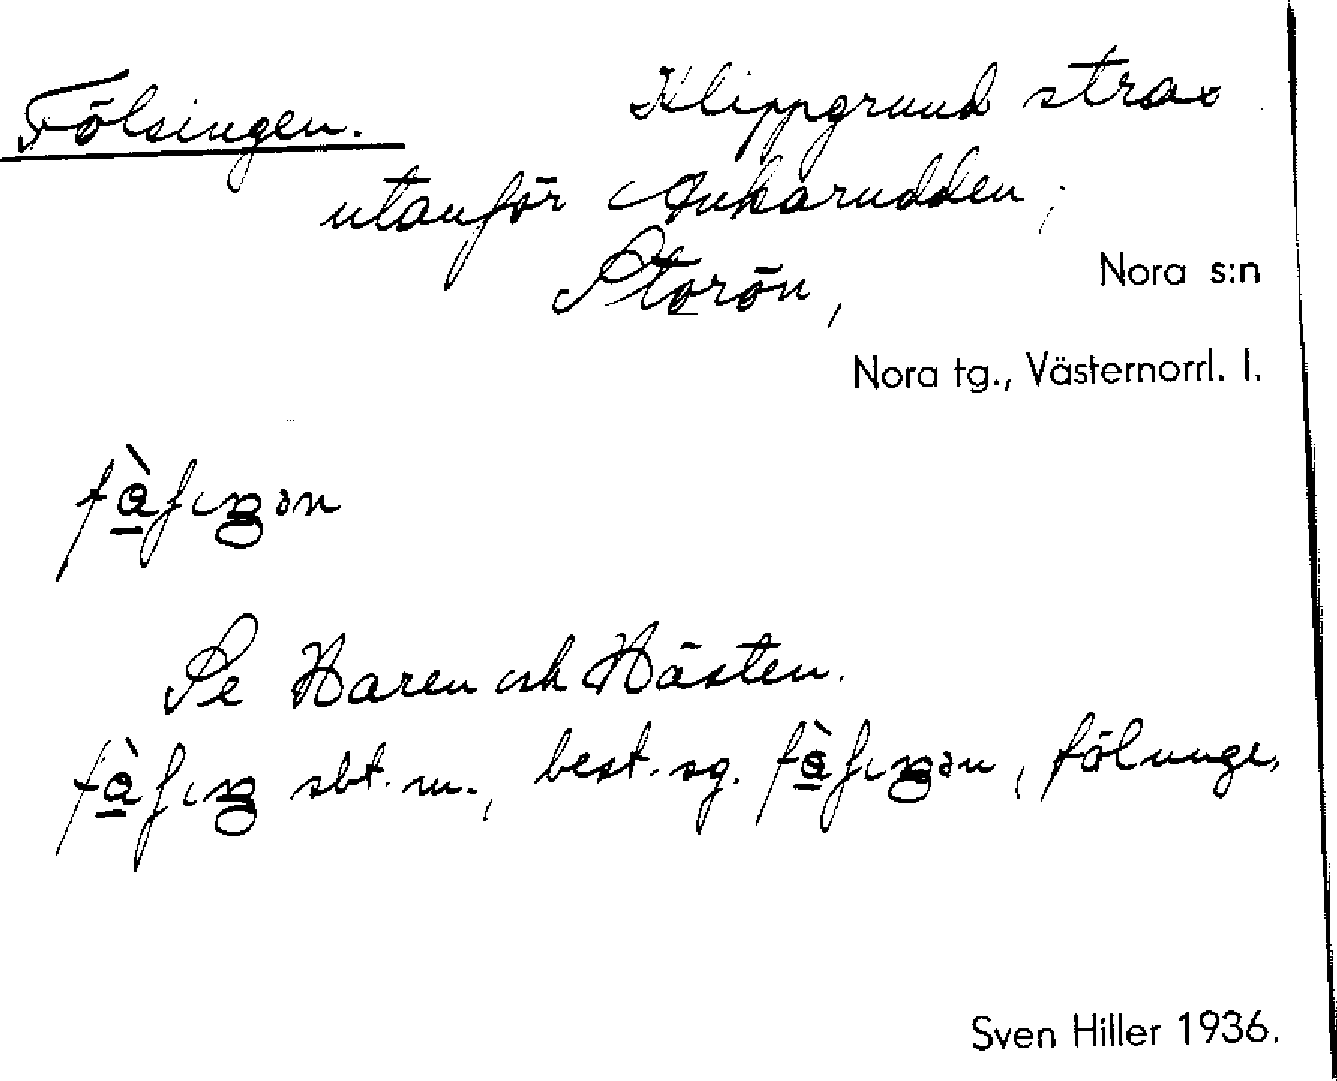 Fölsingen. Klippgrund strax
utanför Ankarudden,
Storön, Nora s:n
Nora tg., Västernorrl. l.
Se Haren och Hästen.
sbt. m., best. sg. , fölunge,
Sven Hiller 1936.